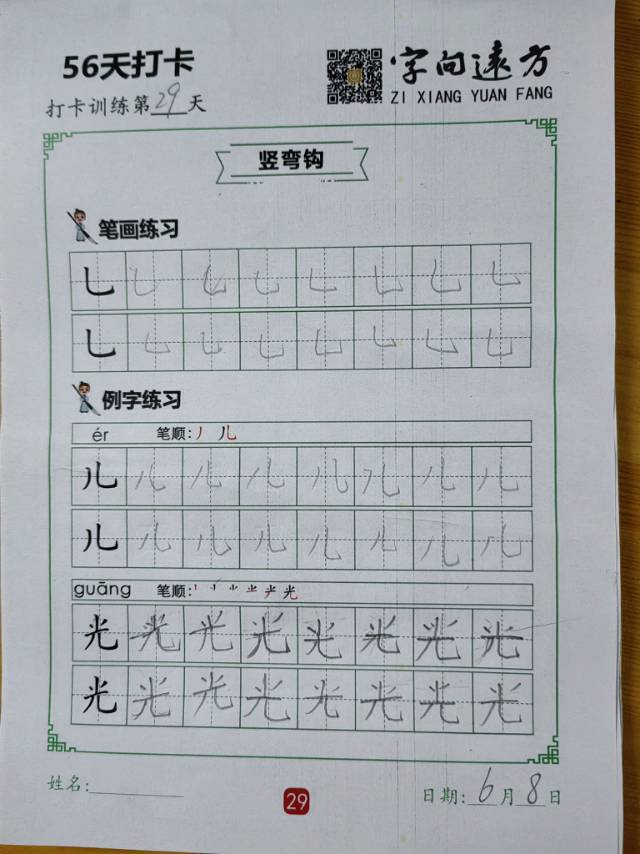 56天打卡
字向遠方
ZI XIANG YUAN FANG
打卡训练第29天
竖弯钩
笔画练习
乚 乚 乚 乚 乚 乚 乚 乚
乚 乚 乚 乚 乚 乚 乚 乚
例字练习
ér 笔顺: 丿 儿
儿 儿 儿 儿 儿 儿 儿 儿
儿 儿 儿 儿 儿 儿 儿 儿
guāng 笔顺: 光
光 光 光 光 光 光 光 光
光 光 光 光 光 光 光 光
姓名:
29
日期: 6月8日